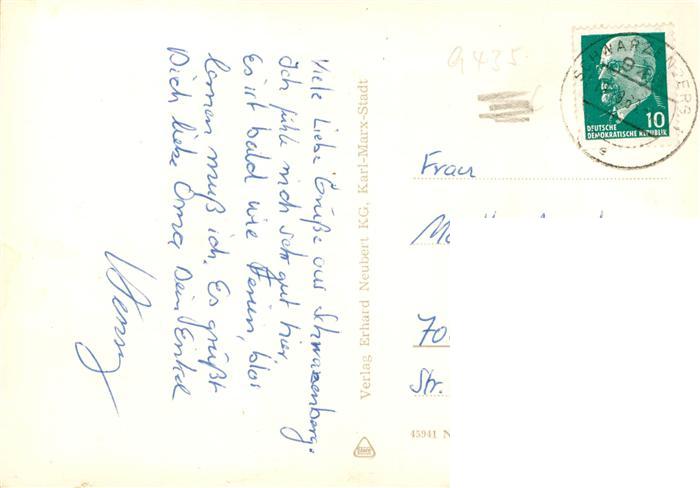 Viele Liebe Grüße aus Schwarzenberg.
Ich fühle mich sehr gut hier.
Es ist bald wie Ferien, blos
lernen muß ich. Es grüßt
Dich liebe Oma Dein Enkel
Verlag Erhard Neubert KG, Karl-Marx-Stadt
9435
SCHWARZENBERG
10
DEUTSCHE
DEMOKRATISCHE REPUBLIK
Frau
Str.
45941 N